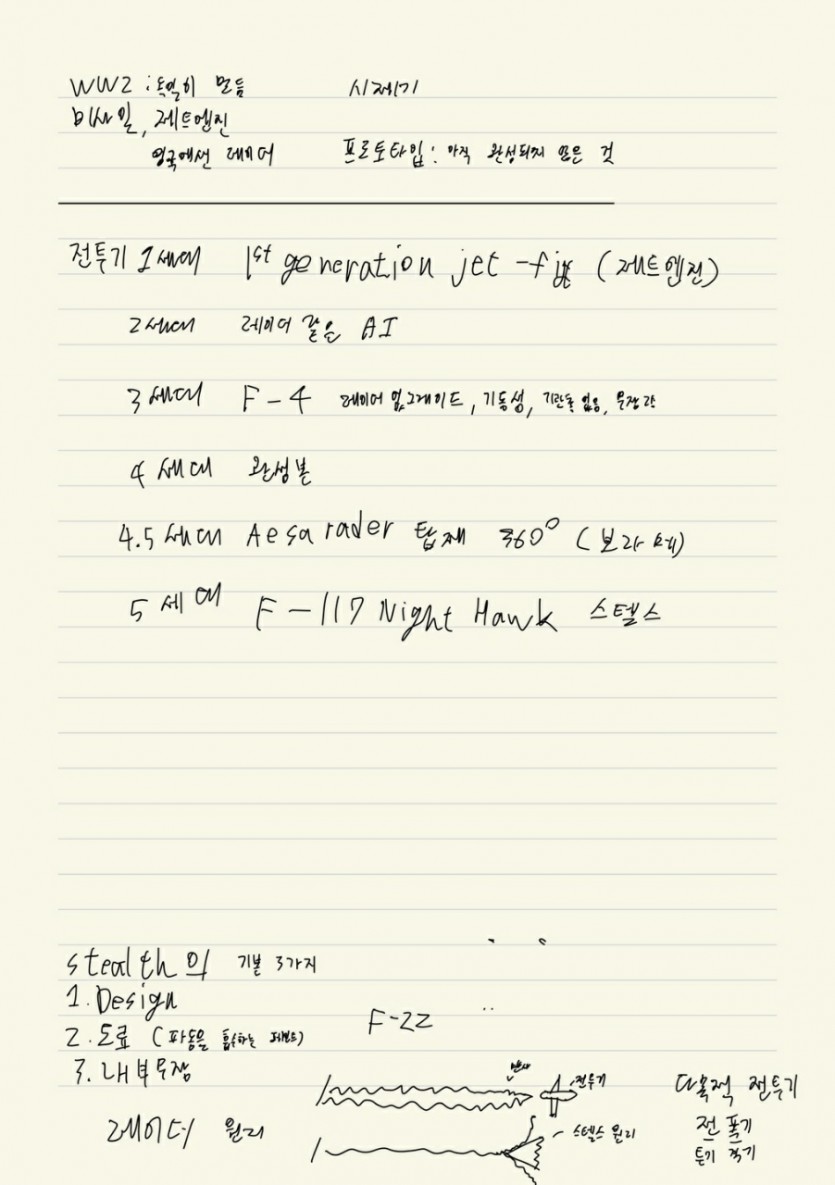 WW2 : 독일이 만듬
시제기
미사일, 제트엔진
영국에선 레이더
프로토타입 : 아직 완성되지 않은 것
전투기 1세대 1st generation jet - (제트엔진)
2세대 레이더 같은 AI
3세대 F-4 레이더 업그레이드, 기동성, 기관총 없음, 무장
4세대 완성본
4.5세대 Aesa rader 탑재 360° (보라매)
5세대 F-117 Night Hawk 스텔스
stealth의 기본 3가지
1. Design
2. 도료 (파동을 흡수하는 페인트)
F-22
3. 내부무장
반사
전투기
다목적 전투기
레이더 원리
스텔스 원리
전 폭
투기 격기